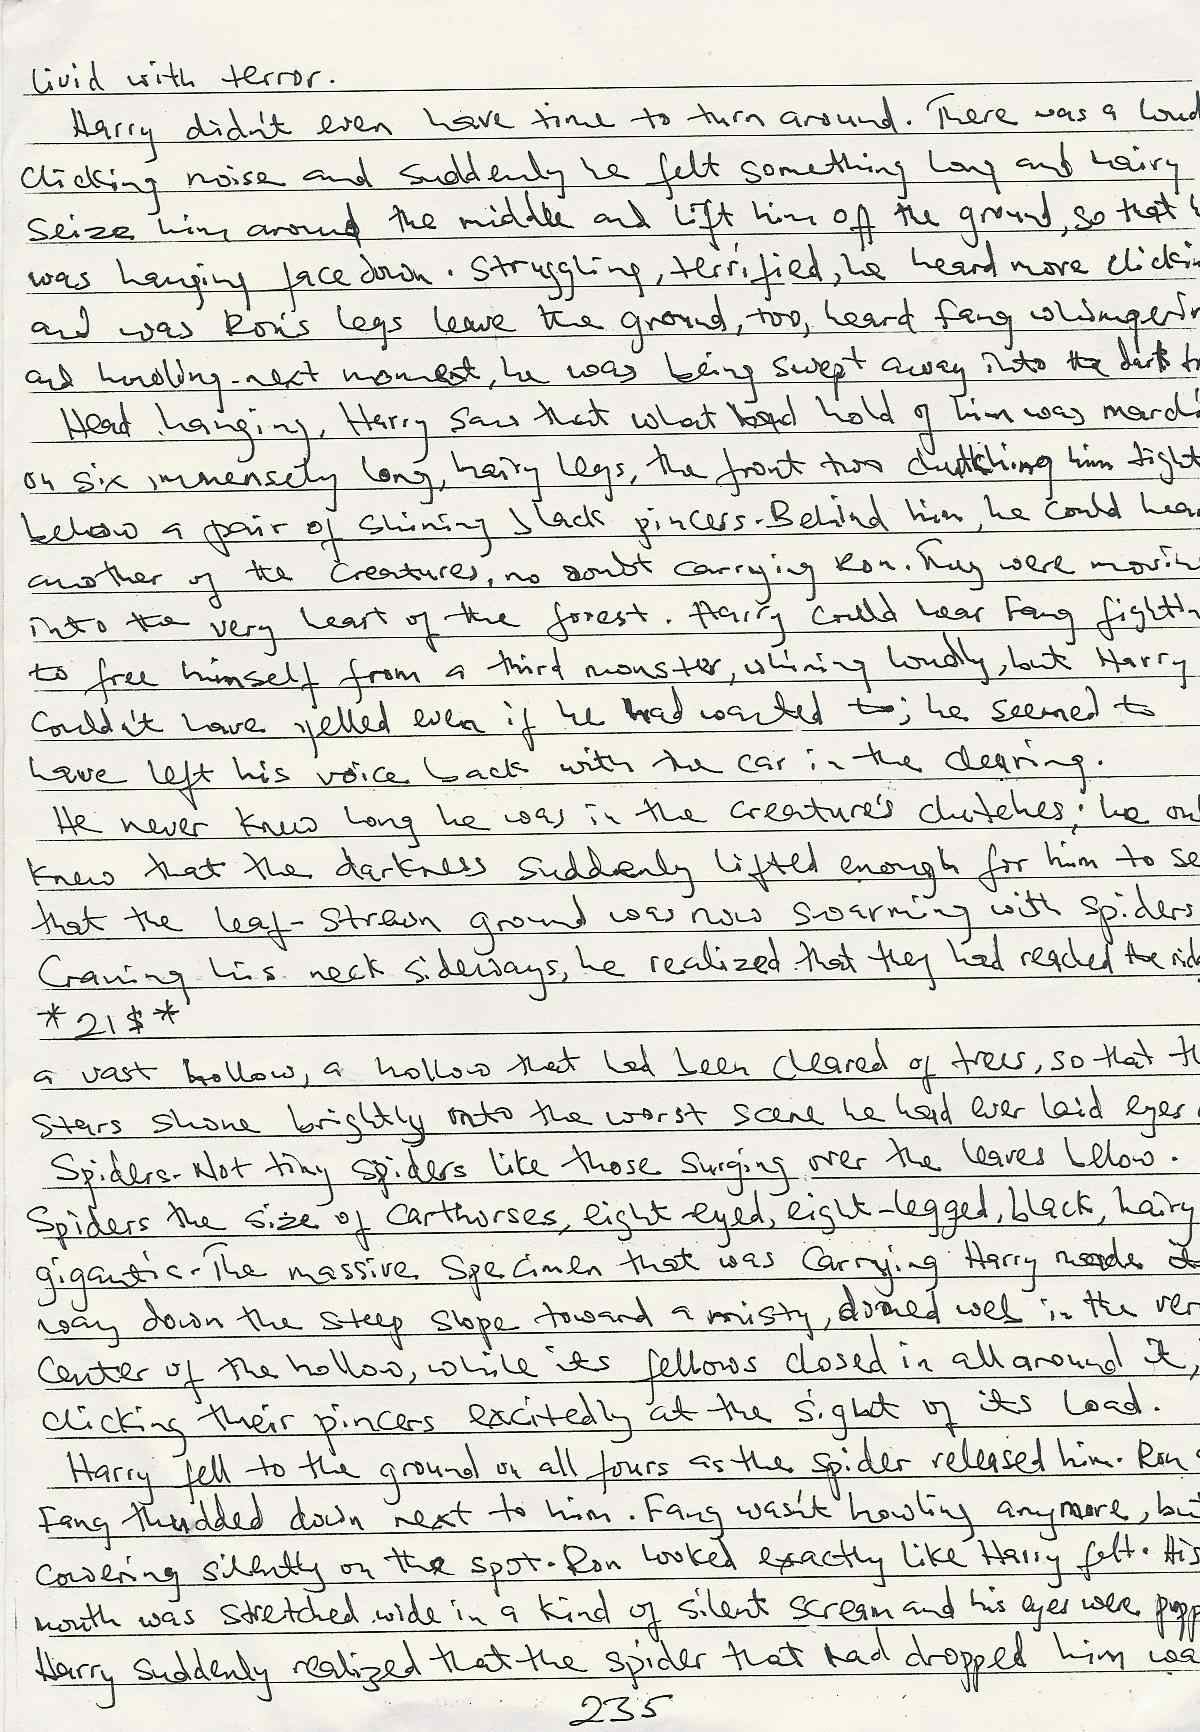 livid with terror.
Harry didn't even have time to turn around. There was a loud
clicking noise and suddenly he felt something long and hairy
seize him around the middle and lift him off the ground, so that
was hanging face down. Struggling, terrified, he heard more clickin
and was Ron's legs leave the ground, too, heard Fang whimperin
and howling-next moment, he was being swept away into the dark tr
Head hanging, Harry saw that what had hold of him was marchi
on six immensely long, hairy legs, the front two clutching him tight
below a pair of shining black pincers. Behind him, he could hear
another of the creatures, no doubt carrying Ron. They were movin
into the very heart of the forest. Harry could hear Fang fightin
to free himself from a third monster, whining loudly, but Harry
couldn't have yelled even if he had wanted to; he seemed to
have left his voice back with the car in the clearing.
He never knew long he was in the creature's clutches; he on
knew that the darkness suddenly lifted enough for him to se
that the leaf-strewn ground was now swarming with spiders
Craning his neck sideways, he realized that they had reached the rid
*21$*
a vast hollow, a hollow that had been cleared of trees, so that th
stars shone brightly onto the worst scene he had ever laid eyes
Spiders. Not tiny spiders like those surging over the leaves below.
Spiders the size of carthorses, eight-eyed, eight-legged, black, hairy
gigantic. The massive specimen that was carrying Harry made it
way down the steep slope toward a misty, domed web in the ver
center of the hollow, while its fellows closed in all around it,
clicking their pincers excitedly at the sight of its load.
Harry fell to the ground on all fours as the spider released him. Ron
Fang thudded down next to him. Fang wasn't howling anymore, but
cowering silently on the spot. Ron looked exactly like Harry felt. His
mouth was stretched wide in a kind of silent scream and his eyes were popp
Harry suddenly realized that the spider that had dropped him was
235